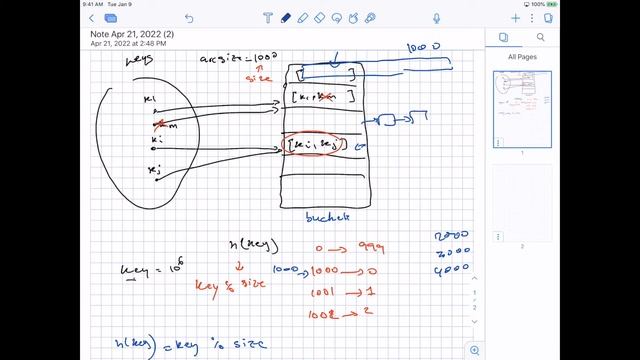 9:41 AM Tue Jan 9
100%
Note Apr 21, 2022 (2)
Apr 21, 2022 at 2:48 PM
All Pages
keys
arrsize = 1000
size
1000
k1
km
ki
[ki, kj]
kj
buckets
h(key)
0 → 999
2000
3000
4000
key = 10^6
key % size
1000 → 1000 → 0
1001 → 1
1002 → 2
h(key) = key % size
1
2
1
2